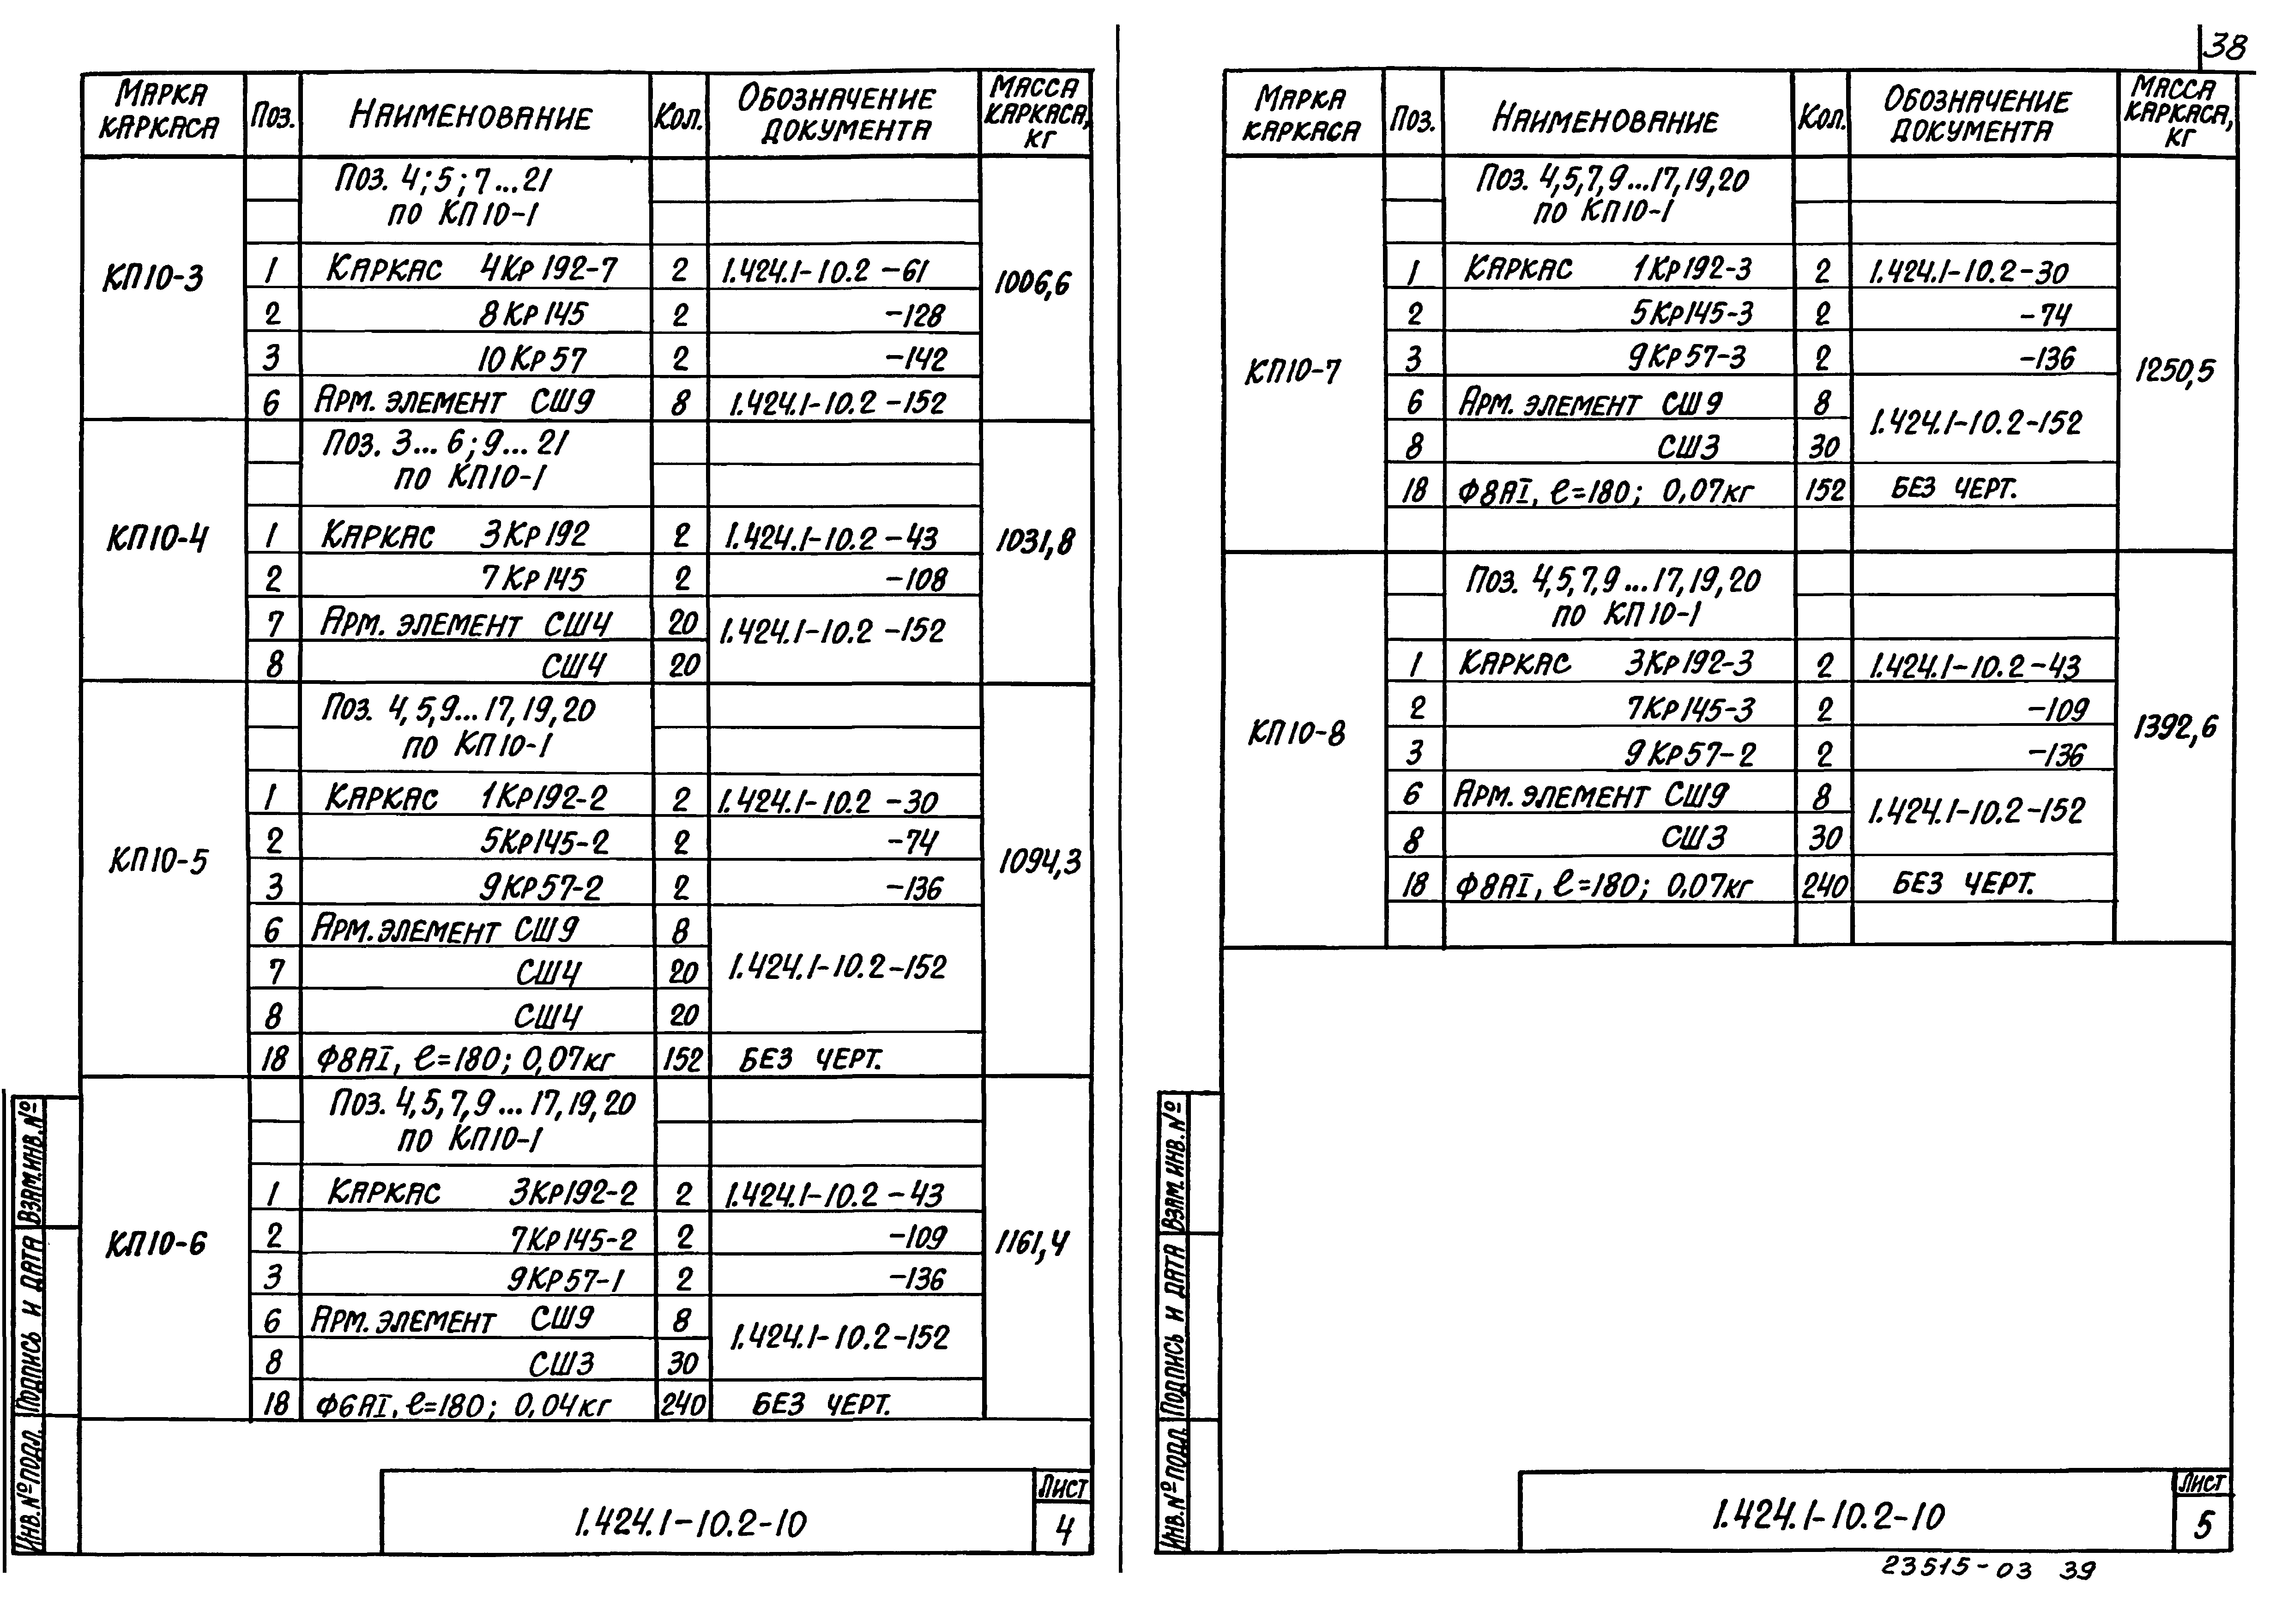 38
Марка каркаса Поз. Наименование Кол. Обозначение документа Масса каркаса, кг
КП10-3 1006,6
Поз. 4; 5; 7...21
по КП10-1
1 Каркас 4Кр192-7 2 1.424.1-10.2-61
2 8Кр145 2 -128
3 10Кр57 2 -142
6 Арм. элемент СШ9 8 1.424.1-10.2-152
КП10-4 1031,8
Поз. 3...6; 9...21
по КП10-1
1 Каркас 3Кр192 2 1.424.1-10.2-43
2 7Кр145 2 -108
7 Арм. элемент СШ4 20 1.424.1-10.2-152
8 СШ4 20
КП10-5 1094,3
Поз. 4,5,9...17,19,20
по КП10-1
1 Каркас 1Кр192-2 2 1.424.1-10.2-30
2 5Кр145-2 2 -74
3 9Кр57-2 2 -136
6 Арм. элемент СШ9 8
7 СШ4 20 1.424.1-10.2-152
8 СШ4 20
18 Ф8АI, ℓ=180; 0,07кг 152 без черт.
КП10-6 1161,4
Поз. 4,5,7,9...17,19,20
по КП10-1
1 Каркас 3Кр192-2 2 1.424.1-10.2-43
2 7Кр145-2 2 -109
3 9Кр57-1 2 -136
6 Арм. элемент СШ9 8 1.424.1-10.2-152
8 СШ3 30
18 Ф6АI, ℓ=180; 0,04кг 240 без черт.
Инв.№подл. Подпись и дата Взам.инв.№
1.424.1-10.2-10 Лист 4
Марка каркаса Поз. Наименование Кол. Обозначение документа Масса каркаса, кг
КП10-7 1250,5
Поз. 4,5,7,9...17,19,20
по КП10-1
1 Каркас 1Кр192-3 2 1.424.1-10.2-30
2 5Кр145-3 2 -74
3 9Кр57-3 2 -136
6 Арм. элемент СШ9 8 1.424.1-10.2-152
8 СШ3 30
18 Ф8АI, ℓ=180; 0,07кг 152 без черт.
КП10-8 1392,6
Поз. 4,5,7,9...17,19,20
по КП10-1
1 Каркас 3Кр192-3 2 1.424.1-10.2-43
2 7Кр145-3 2 -109
3 9Кр57-2 2 -136
6 Арм. элемент СШ9 8 1.424.1-10.2-152
8 СШ3 30
18 Ф8АI, ℓ=180; 0,07кг 240 без черт.
Инв.№подл. Подпись и дата Взам.инв.№
1.424.1-10.2-10 Лист 5
23515-03 39